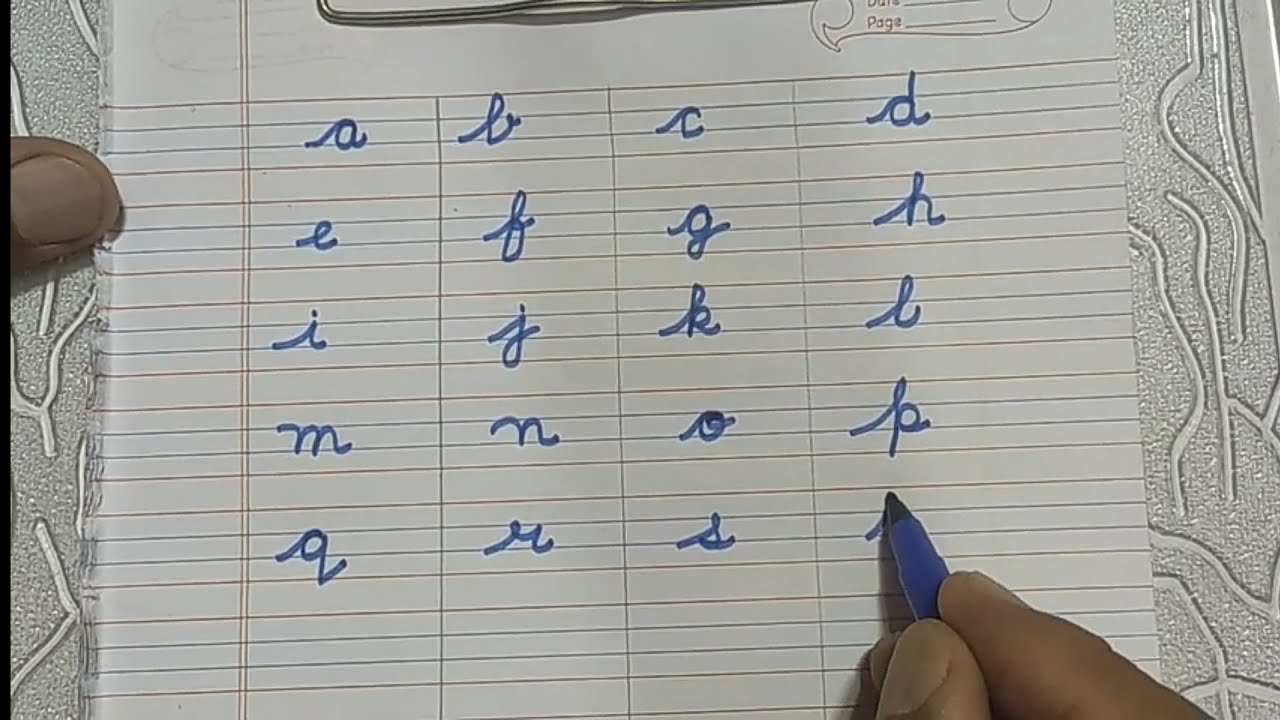 Date
Page
a b c d
e f g h
i j k l
m n o p
q r s